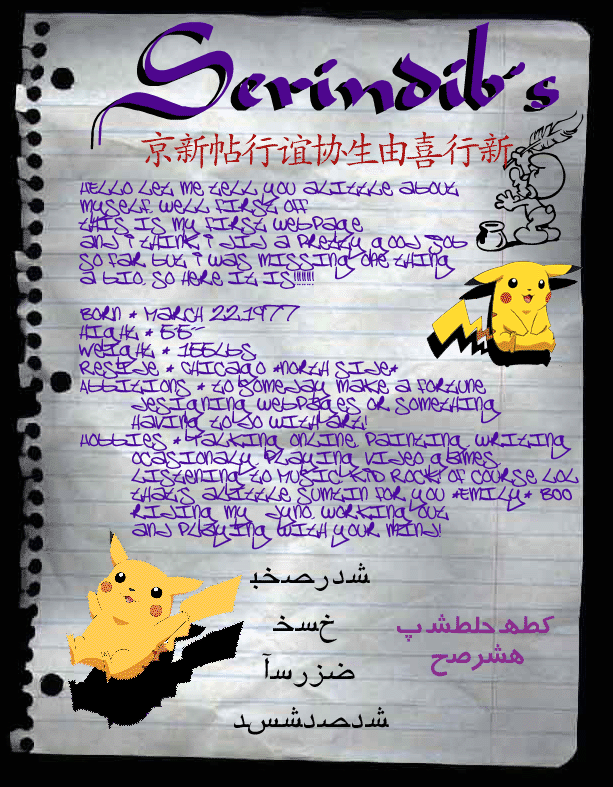 Serindib's
京新帖行谊协生由喜行新
HELLO LET ME TELL YOU ALITTLE ABOUT
MYSELF. WELL FIRST OFF
THIS IS MY FIRST WEBPAGE
AND I THINK I DID A PRETTY GOOD JOB
SO FAR BUT I WAS MISSING ONE THING
A BIO, SO HERE IT IS!!!!!!!
BORN * MARCH 22,1977
HIGHT * 5'5"
WEIGHT * 155LBS
RESIDE * CHICAGO *NORTH SIDE*
ABBITIONS * TO SOMEDAY MAKE A FORTUNE
DESIGNING WEBPAGES OR SOMETHING
HAVING TO DO WITH ART!
HOBBIES * TALKING ONLINE, PAINTING, WRITING
OCASIONALY, PLAYING VIDEO GAMES,
LISTENING TO MUSIC, KID ROCK! OF COURSE LOL
THATS ALITTLE SUMTIN FOR YOU *EMILY* BOO
RIDING MY DYNO, WORKING OUT
AND PLAYING WITH YOUR MIND!
شدرصخب
خسخ
ضزرسآ
شدصدشسد
كطه حلطش پ
هشرصح